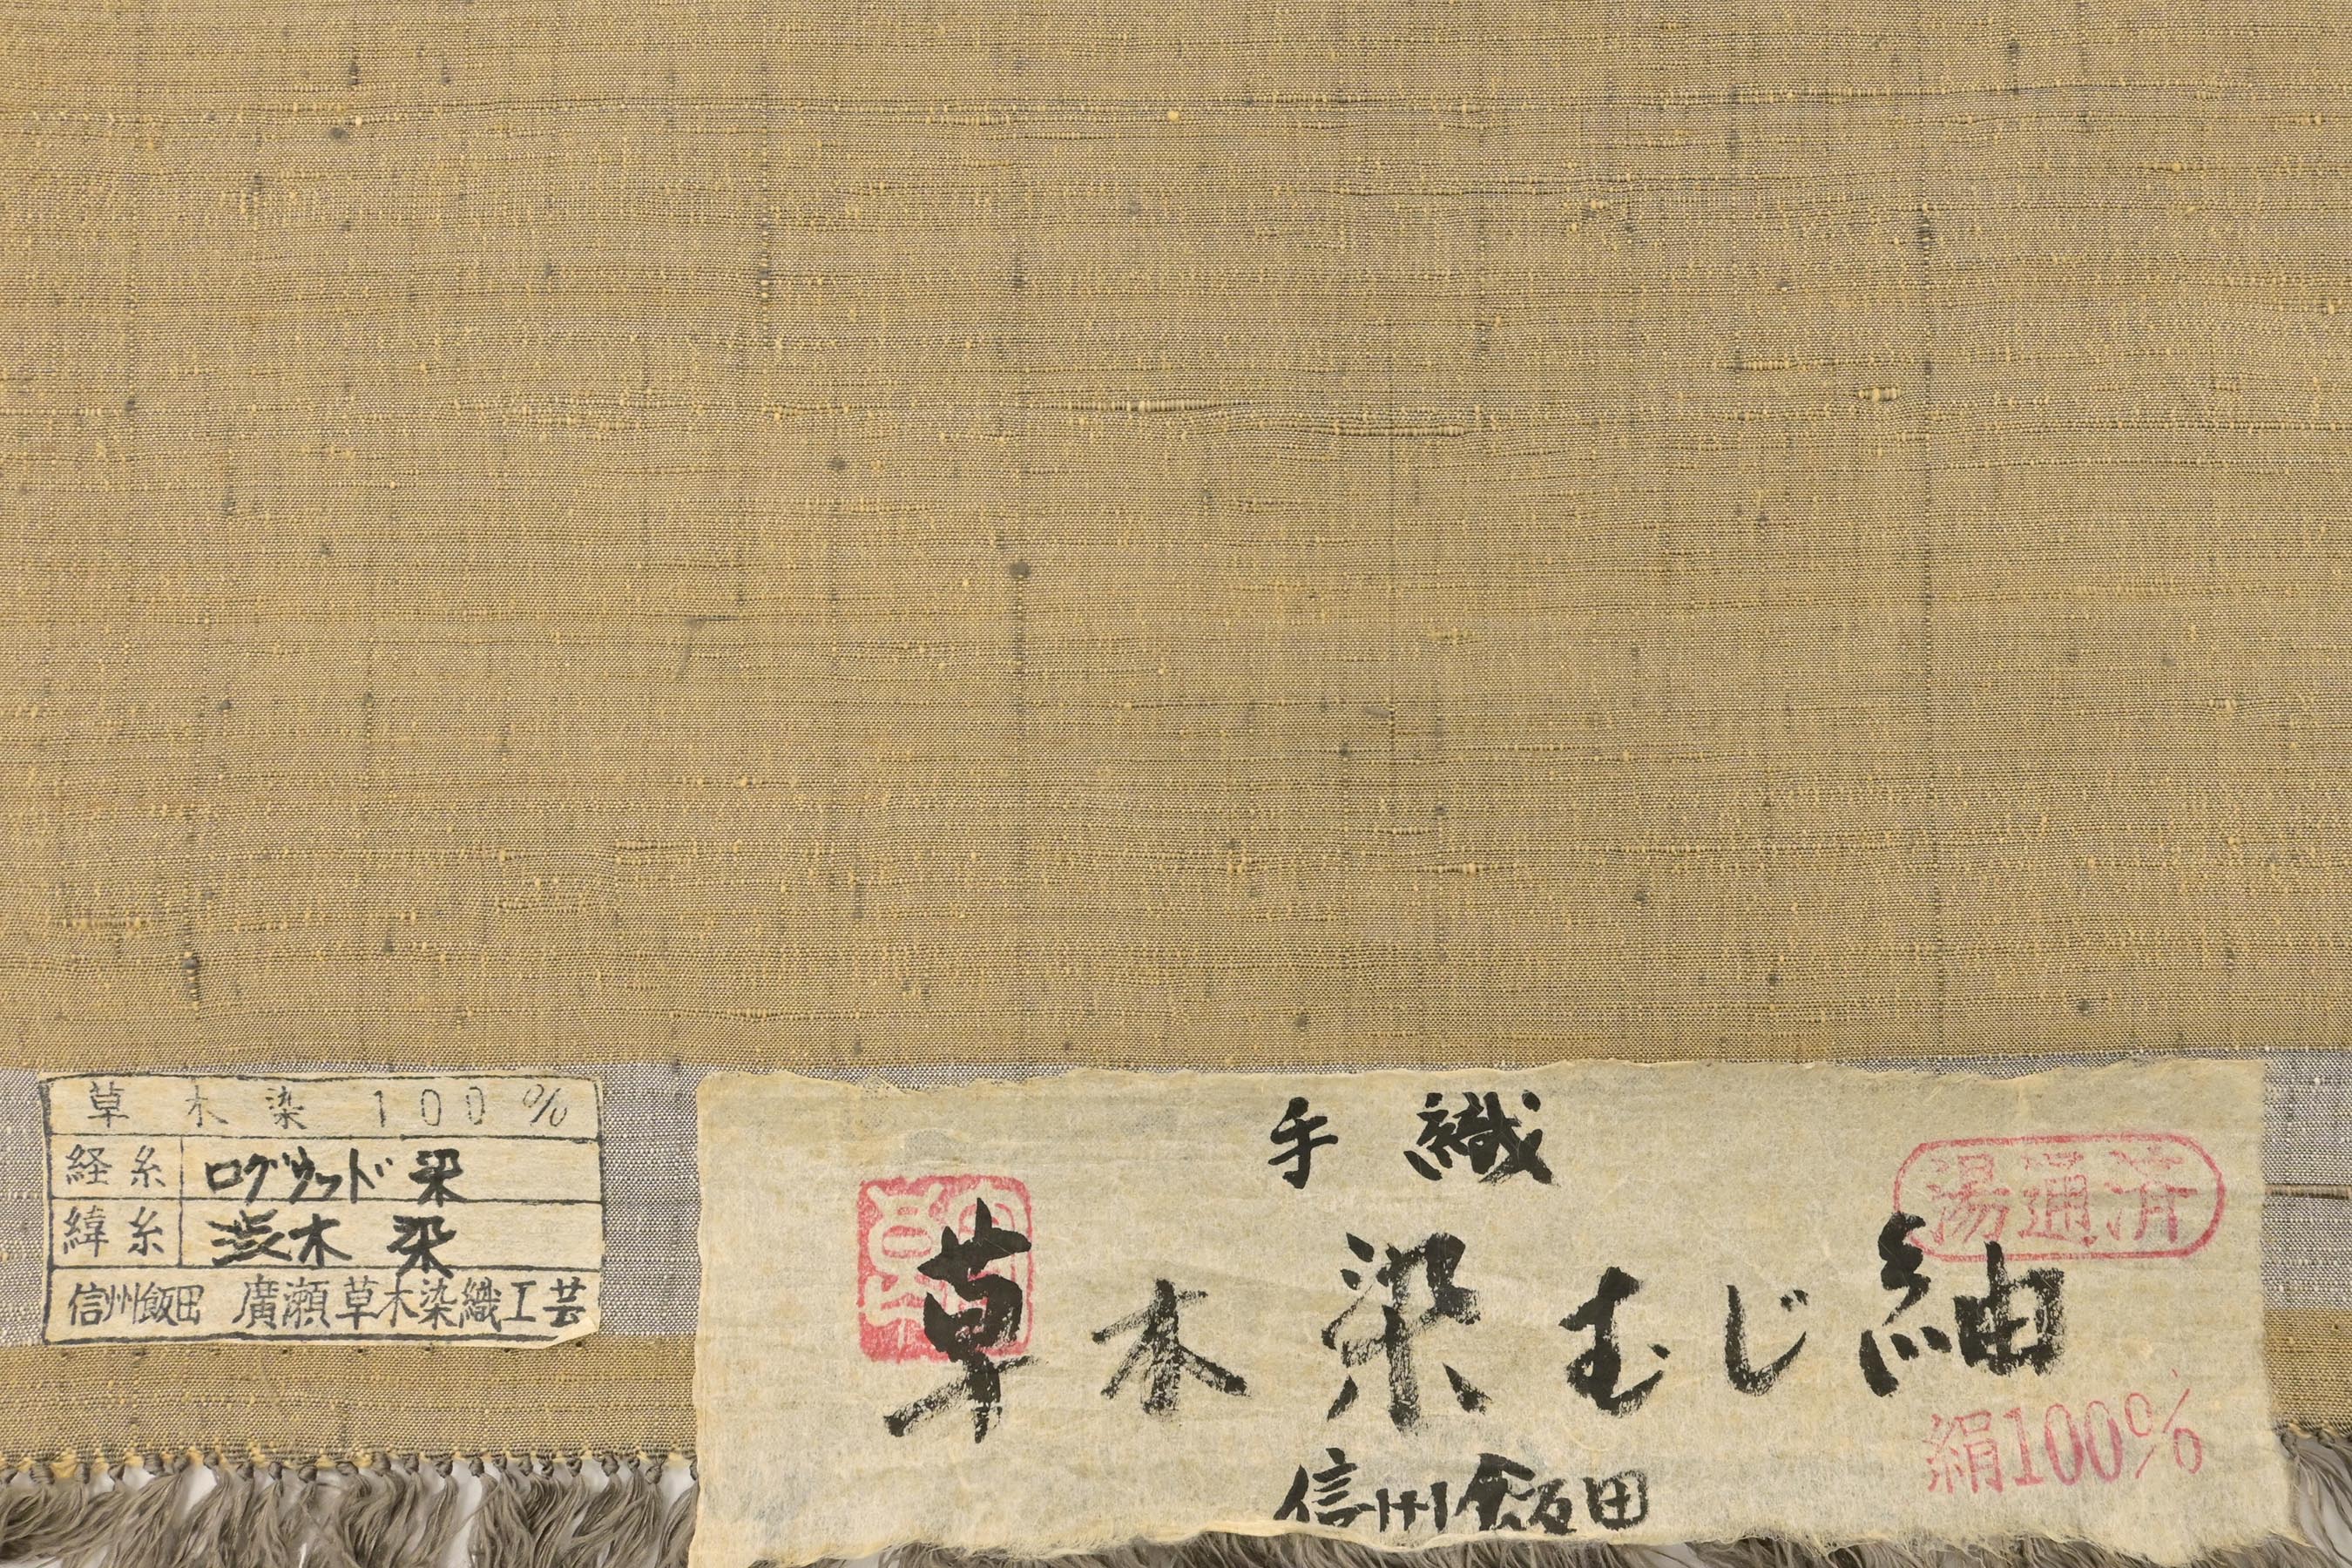 草木染100%
経糸 ログウッド染
緯糸 渋木染
信州飯田 廣瀬草木染織工芸
手織
草木染むじ紬
湯通済
絹100%
信州飯田